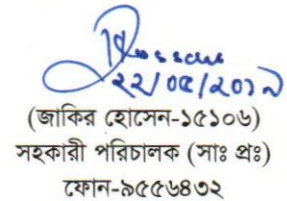 ২২/০৫/২০১৯
(জাকির হোসেন-১৫১০৬)
সহকারী পরিচালক (সাঃ প্রঃ)
ফোন-৯৫৫৬৪৩২